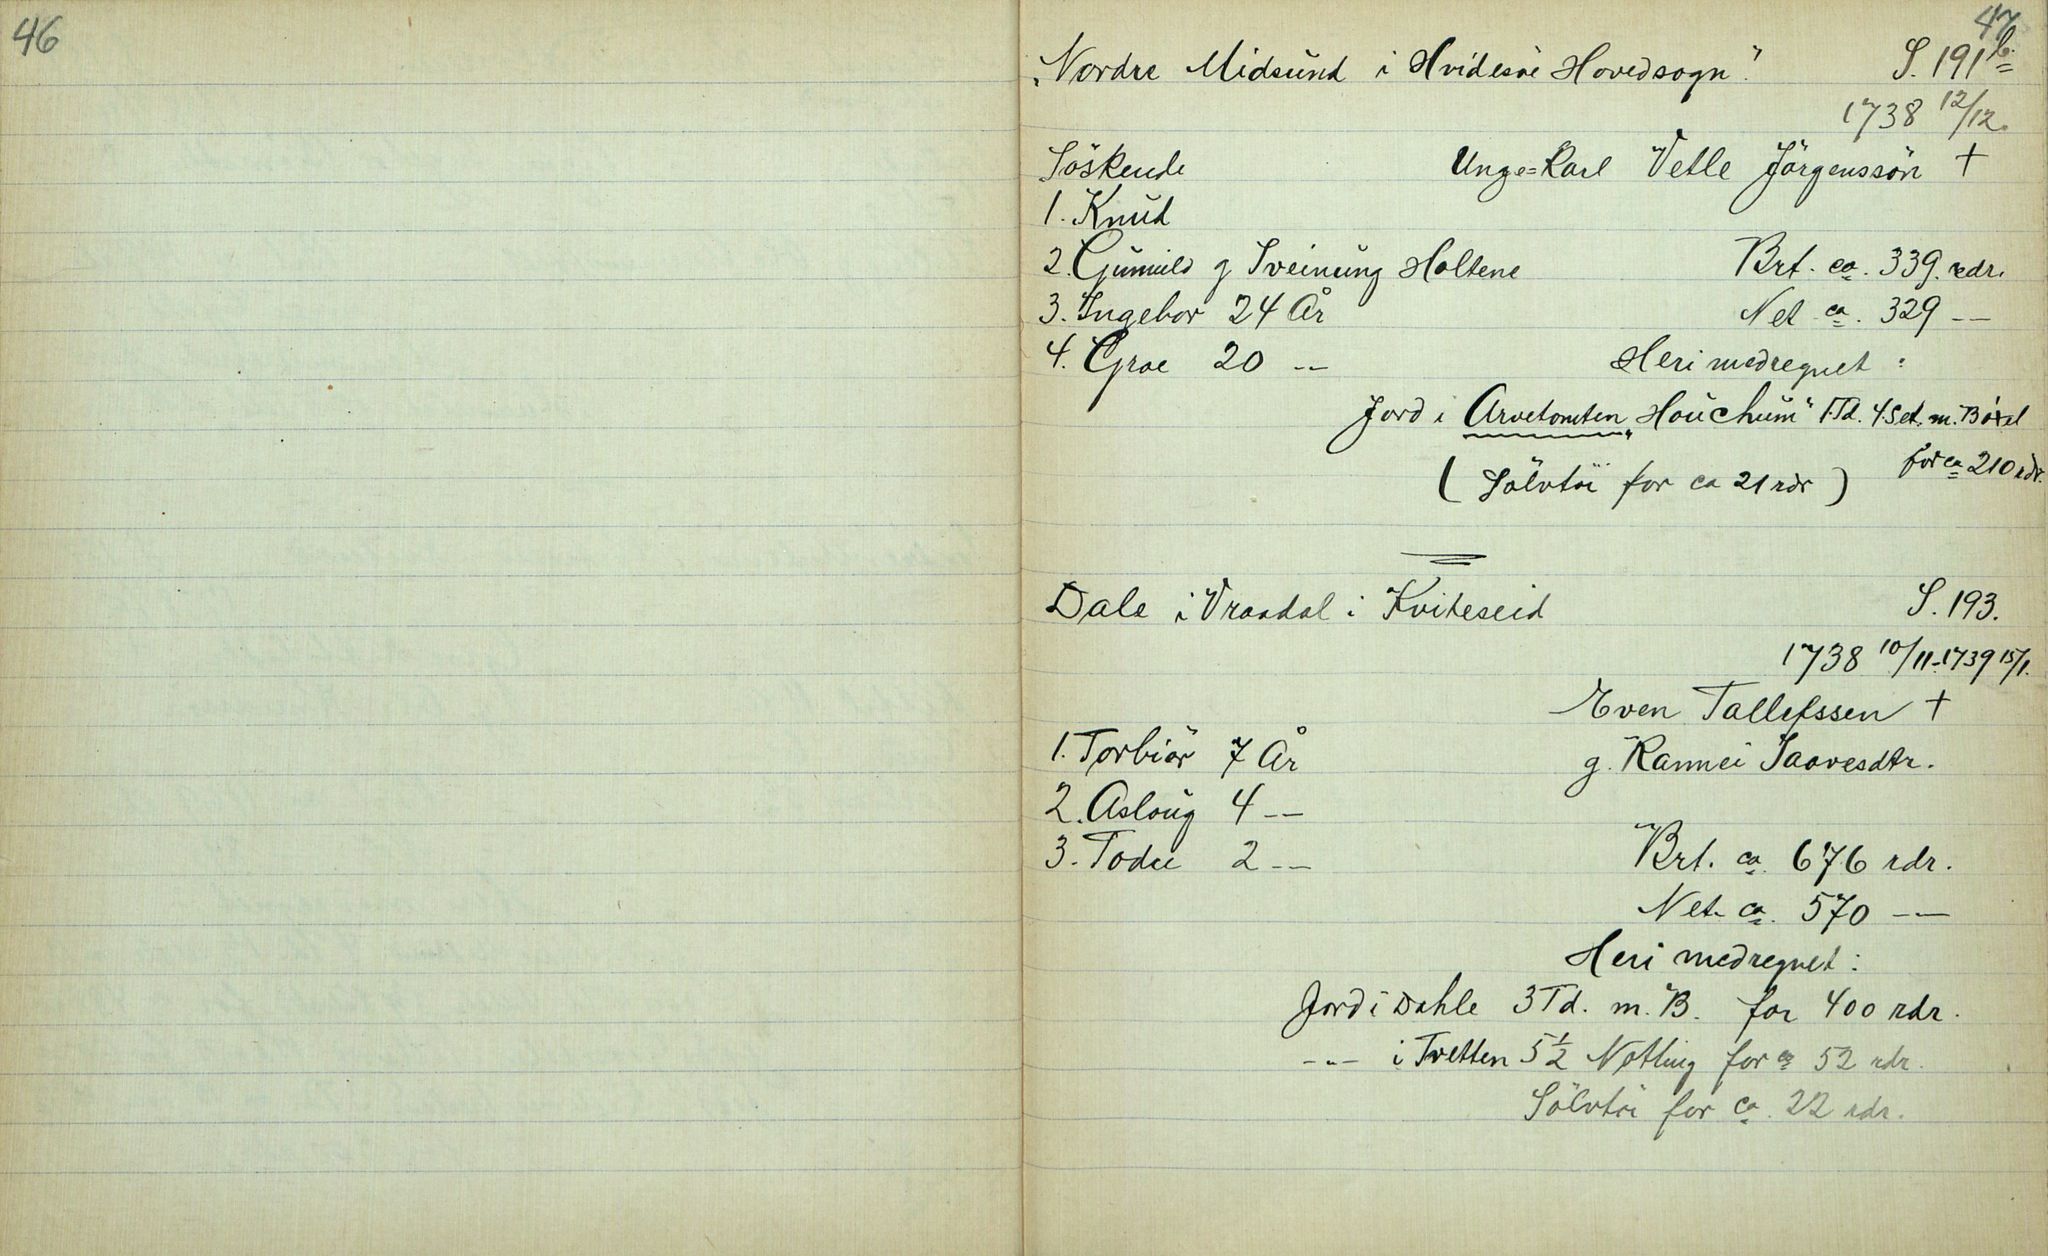 46
47
„Nordre Midsund i Hvidesøe Hovedsogn." S. 191 b.
1738 12/12.
Söskende Unge=Karl Vetle Jörgenssön †
1. Knud
2. Gunnild g Sveinung Holtene Brt. ca. 339. rdr.
3. Ingebor 24 År Net ca. 329 -..-
4. Groe 20 -..- Heri medregnet :
Jord i Arvetomten „Houchum" 1 Td. 4 Set. m. Böxel
for ca 210 rdr.
( Sölvtöi for ca 21 rdr )
Dale i Vraadal i Kviteseid S. 193.
1738 10/11-1739 15/1.
Even Tallefssen †
1. Torbiör 7 År g. Rannei Saavesdtr.
2. Asloug 4 -..-
3. Todne 2 -..- Brt. ca. 676 rdr.
Net. ca. 570 -..-
Heri medregnet :
Jord i Dahle 3 Td. m. B. for 400 rdr.
-..- i Tvetten 5½ Notting for ca 52 rdr.
Sölvtöi for ca. 22 rdr.